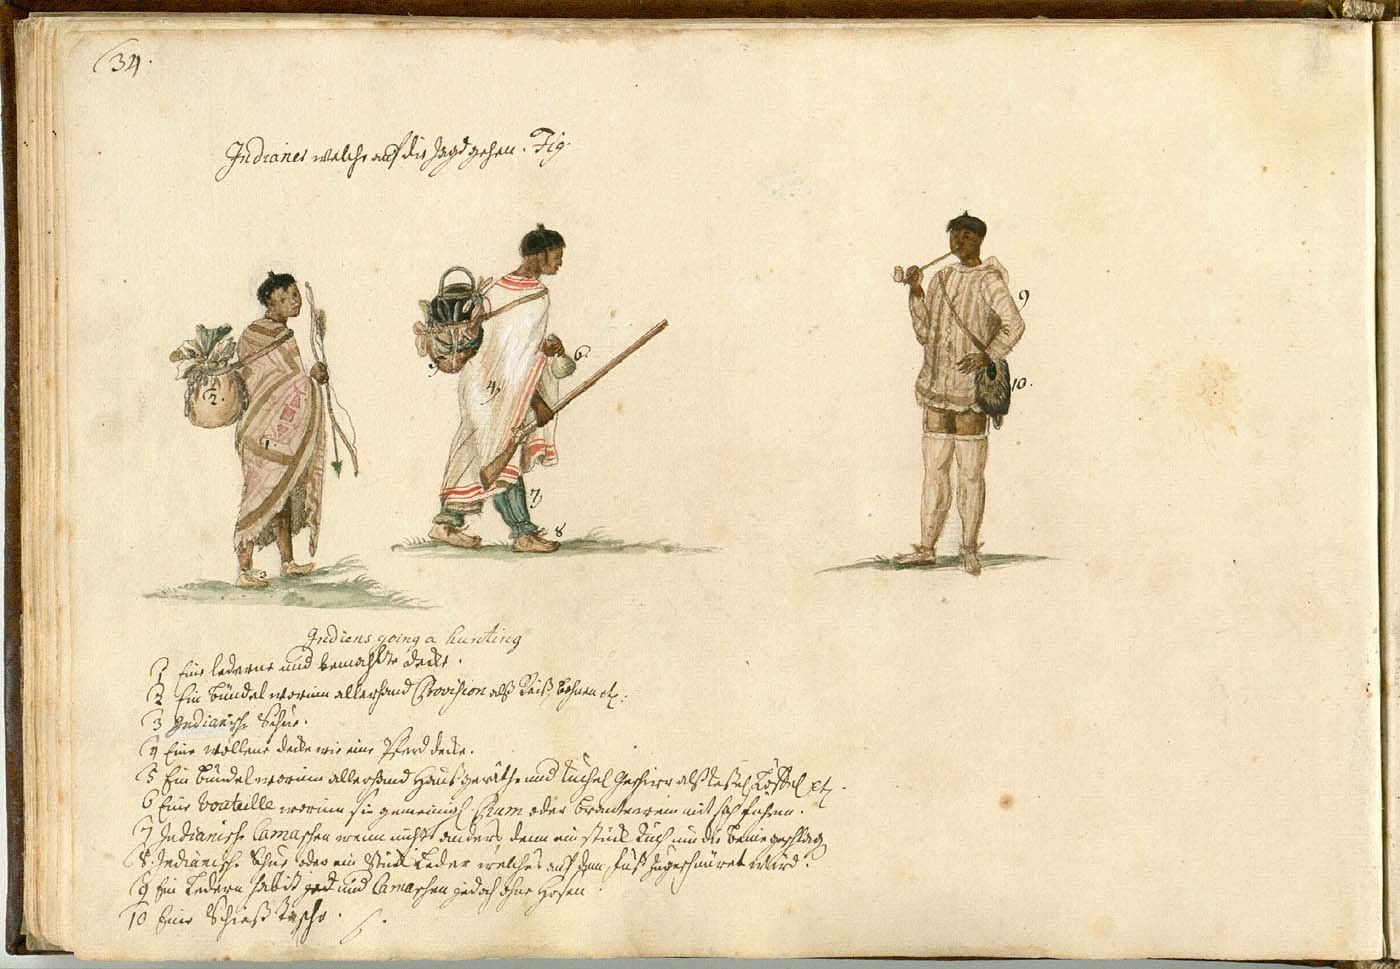 34.
Indianer welche auf die Jagd gehen. Fig.
9
6.
10.
2.
4
5
1
7
8
3
Indiens going a hunting
1 Eine lederne und bemahlte decke.
2 Ein bündel worinn allerhand Provision alß Reiß, bohnen etc.
3 Indianische Schue.
4 Eine wollene decke wie eine Pferd decke.
5 Ein bündel worinn allerhand Haußgeräthe und Küchel Geschirr alß Keßel, Löffel etc.
6 Eine bouteille worinn sie gemeinigl. Rum oder brantewein mit sich führen.
7 Indianische Camaschen wenn nichts anders denn ein stück tuch um die beine geschlag
8. Indianische Schue oder ein Stück Leder welches auf dem fuß zugeschnüret wird.
9 Ein Ledern habit und Camaschen jedoch ohne Hosen
10 Eine Schieß Tasche.